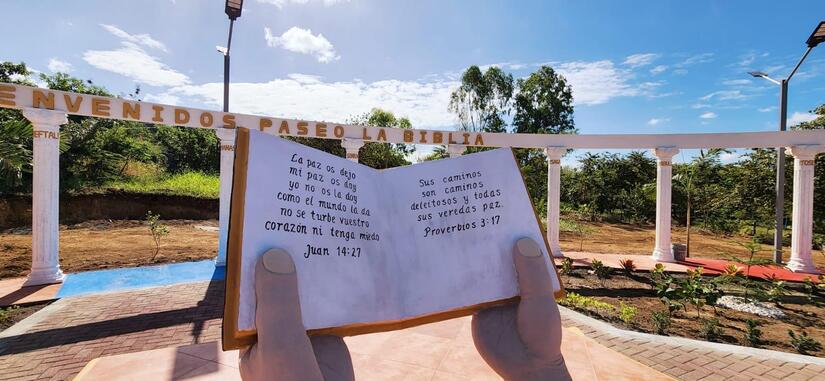 ENVENIDOS PASEO LA BIBLIA
La paz os dejo
mi paz os doy
yo no os la doy
como el mundo la da
no se turbe vuestro
corazón ni tenga miedo
Juan 14:27
Sus caminos
son caminos
deleitosos y todas
sus veredas paz.
Proverbios 3:17